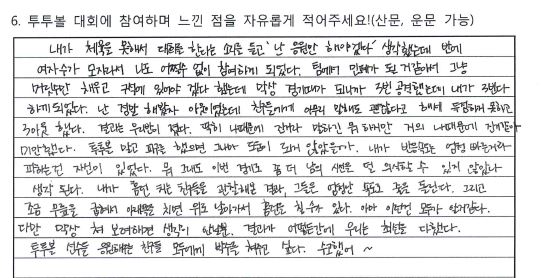 6. 투투볼 대회에 참여하며 느낀 점을 자유롭게 적어주세요!(산문, 운문 가능)
내가 체육을 못해서 대회를 한다는 소리를 듣고 '난 응원만 해야겠다' 생각했는데 반에
여자수가 모자라서 나도 어쩔수 없이 참여하게 되었다. 팀에게 민폐가 될 것같아서 그냥
머릿수만 채우고 구석에 있어야 겠다 했는데 막상 경기때가 되니까 3번 공격했는데 내가 3번다
하게 되었다. 난 정말 해맑게 아웃이었는데 친구들에게 아무리 말해도 괜찮다고 해서 득점하지 못하고
3아웃 했다. 결과는 우리반이 졌다. 딱히 나때문에 진거라 말하긴 뭐 하지만 거의 나때문에 진거같아
미안했다. 투투볼 말고 피구를 했으면 그나마 도움이 되지 않았을까. 내가 반응속도는 엄청 빠른거라
피하는건 자신이 있었다. 뭐 그래도 이번 경기로 좀 더 남의 시선을 덜 의식할 수 있지 않았나
생각 된다. 내가 홈런 치는 친구들을 관찰해본 결과, 그들은 엄청난 속도로 공을 돌린다. 그리고
조금 무릎을 굽혀서 아래쪽을 치면 위로 날아가서 홈런을 칠 수가 있다. 아마 이런건 모두가 아는거겠다.
다만 막상 쳐 보려하면 생각이 안날뿐. 결과가 어떻든간에 우리는 최선을 다했다.
투투볼 선수들 응원해준 친구들 모두에게 박수를 쳐주고 싶다. 수고했어 ~